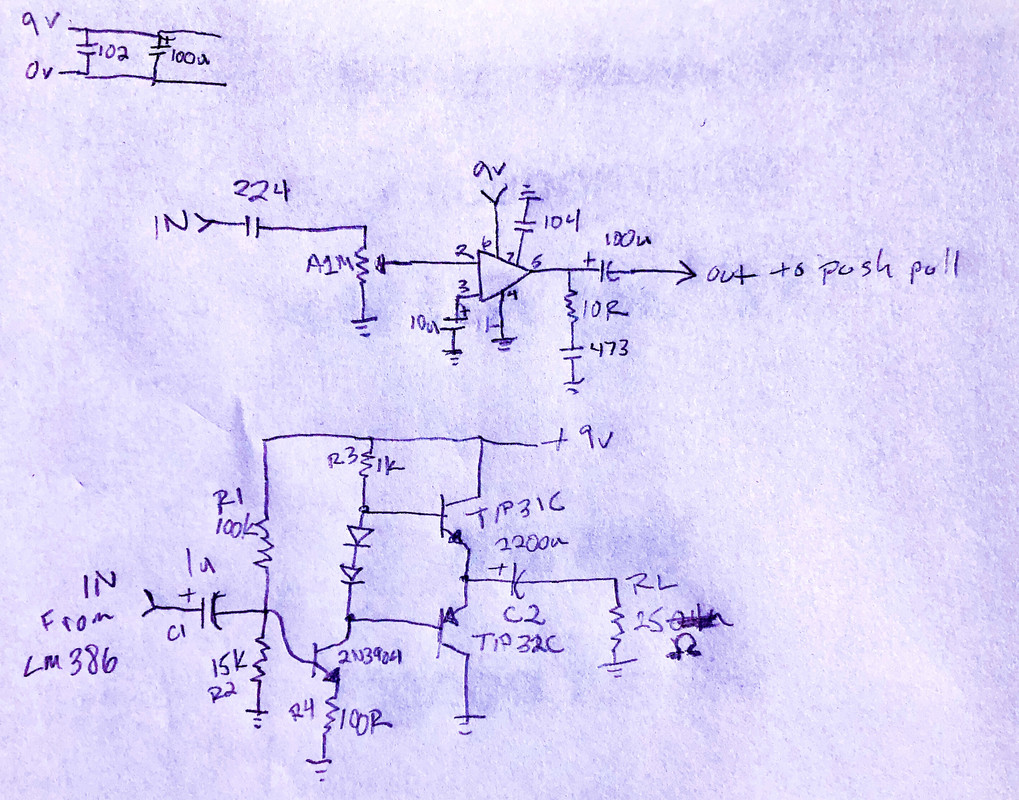 9V
102
100u
0v
224
IN
A1M
9v
104
2
6
7
5
3
4
10u
100u
out to push pull
10R
473
+9v
R3 1k
R1
100k
TIP31C
2200u
IN
From
LM386
1u
C1
15K
R2
2N3904
R4 100R
C2
TIP32C
RL
25
Ω